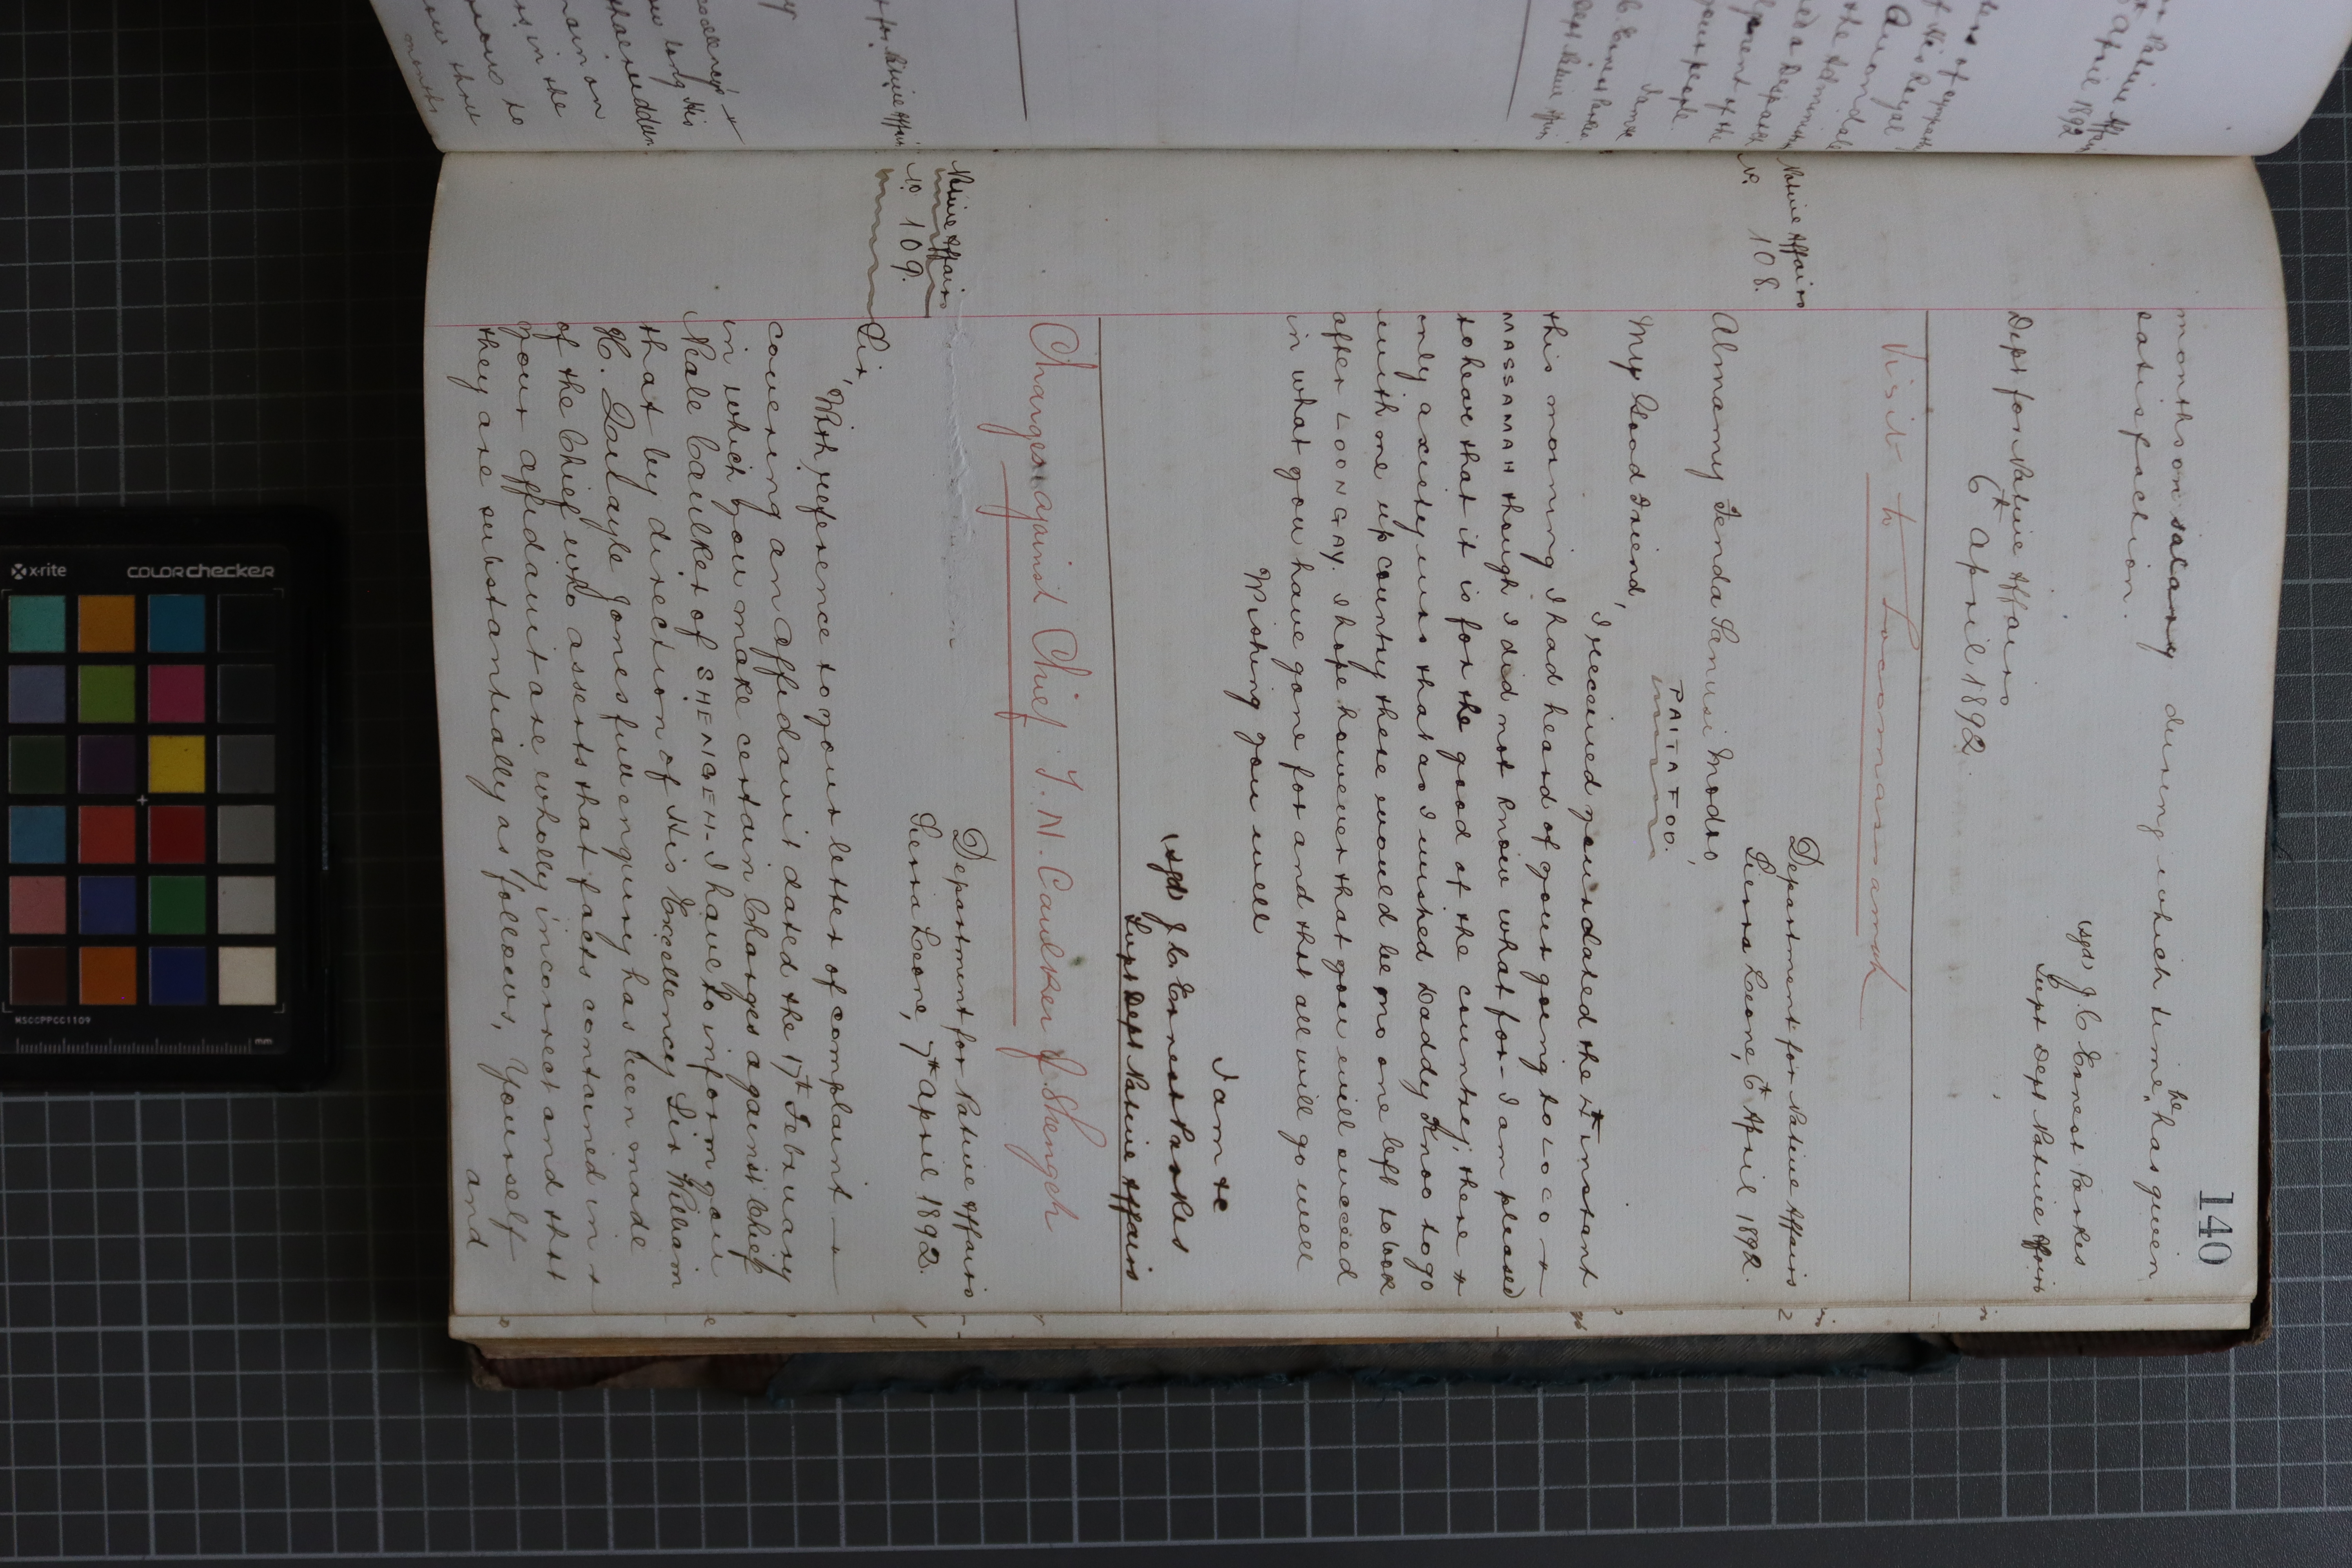 140
months on salary during which time he has given
satisfaction.
(sgd) J C Ernest Parkes
Supt Dept Native Affairs
Dept for Native Affairs
6th April 1892.
Visit to Locommassamah
Native Affairs
No. 108.
Department for Native Affairs
Sierra Leone, 6th April 1892.
Almamy Senda Sanusi Modo,
PAITAIFOO.
My Good Friend,
I received yours dated the 4th instant
this morning I had heard of your going to LOCO
MASSAMAH though I did not know what for - I am pleased
to hear that it is for the good of the country, there &
only axiety was that as I wished Daddy Knoo to go
with me up country there would be no one left to look
after LOONGAY. I hope however that you will succeed
in what you have gone for and that all will go well
Wishing you well
I am &c
(sgd) J C Ernest Parkes
Supt Dept Native Affairs
Charges against Chief T. N. Caulker of Shengeh
Native Affairs
No 109.
Department for Native Affairs
Sierra Leone, 7th April 1892.
Sir,
With reference to your letter of complaint
covering an affidavit dated the 17th February
in which you make certain charges against Chief
Neale Caulker of SHENGEH - I have to inform you
that by direction of His Excellency Sir William
H. Quayle Jones full enquiry has been made
of the Chief who asserts that facts contained in
your affidavit are wholly incorrect and that
they are substantially as follows, Yourself
and
x-rite
COLORchecker
MSCCPPCC1109
mm